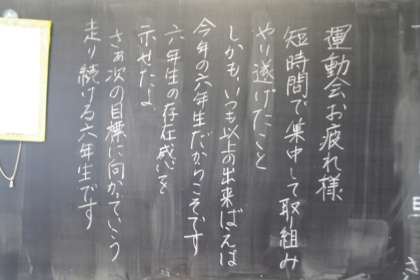 運動会お疲れ様
短時間で集中して取り組み
やり遂げたこと
しかも、いつも以上の出来ばえは
今年の六年生だからこそです
六年生の存在感を
示せたよ
さあ次の目標に向かっていう
走り続ける六年生です